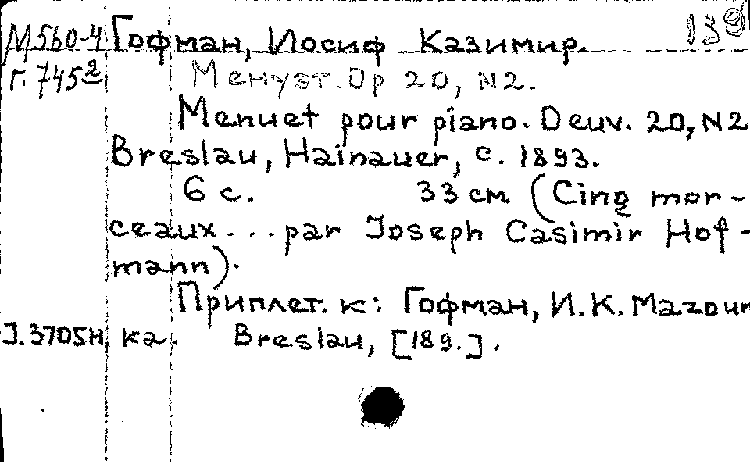 М560-4 Гофман, Иосиф Казимир. 139
Г.745² Менуэт. Op 20, N2.
Menuet pour piano. Oeuv. 20, N2
Breslau, Hainauer, c. 1893.
6 с. 33 см (Cinq mor-
ceaux... par Joseph Casimir Hof-
mann).
Приплет. к: Гофман, И.К. Mazour
J.3705н ka. Breslau, [189.].